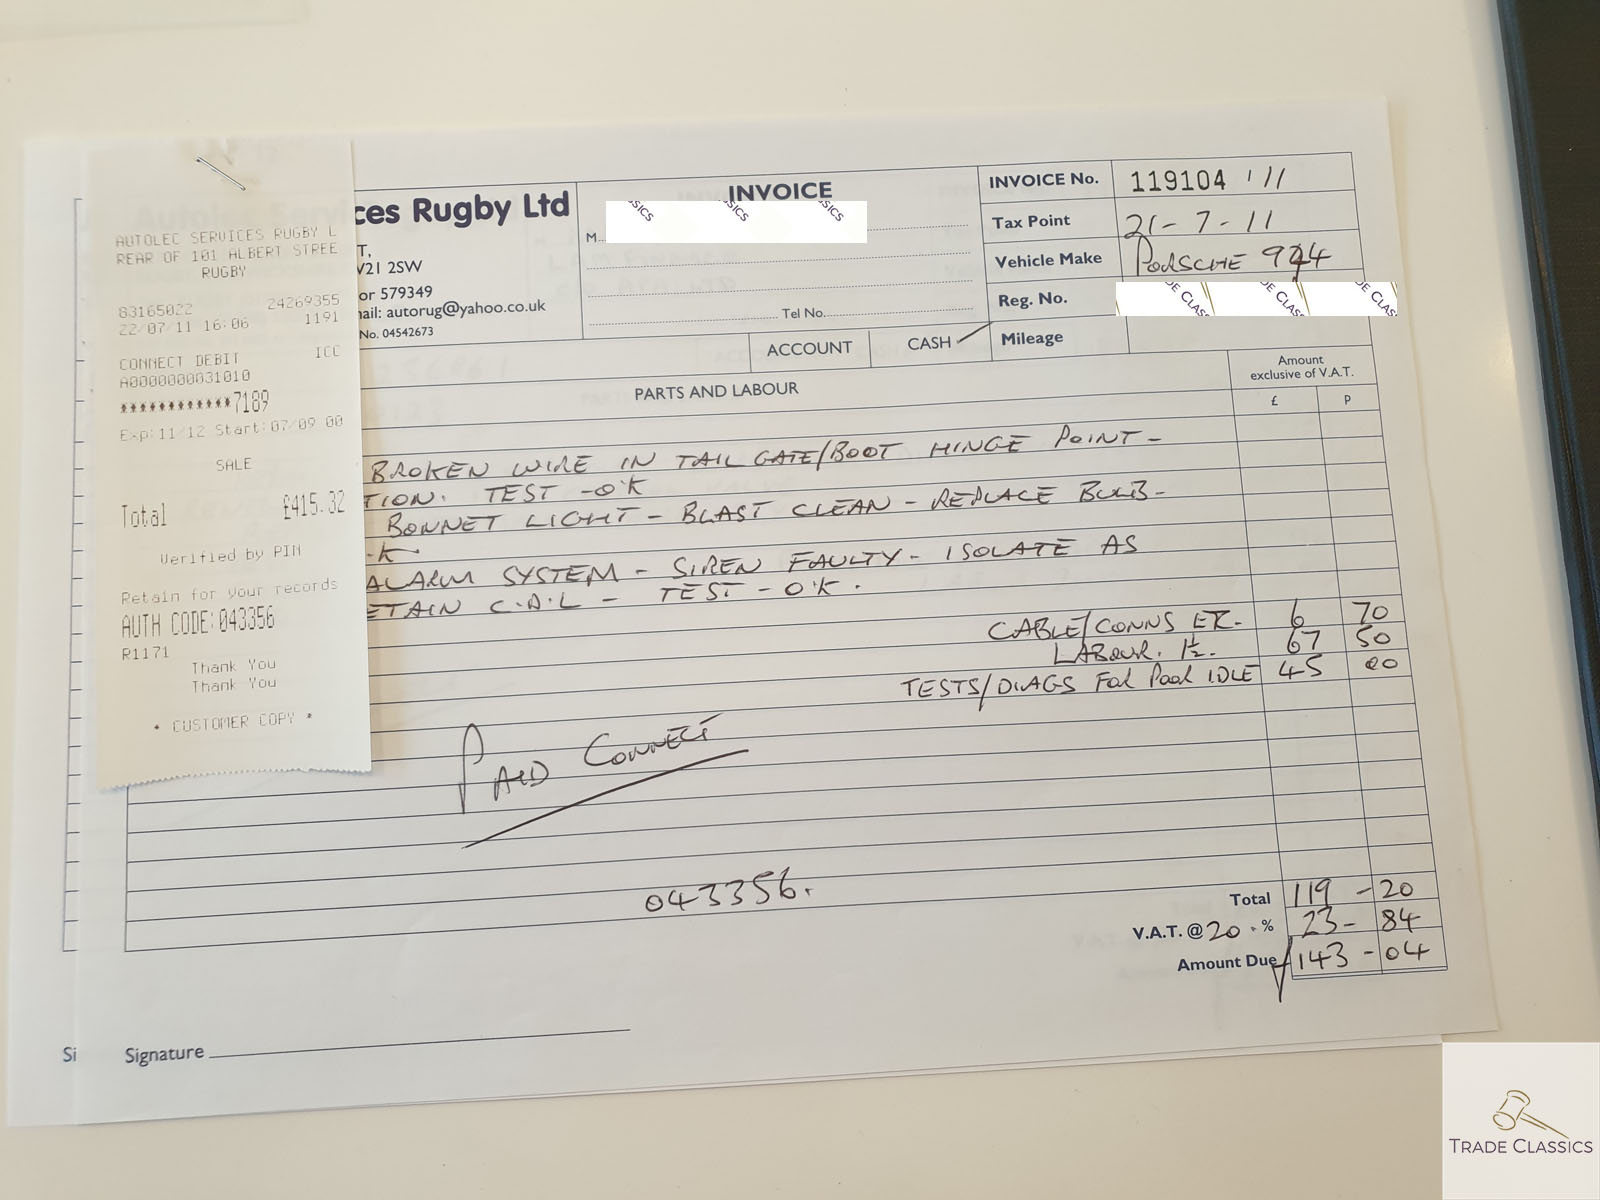 AUTOLEC SERVICES RUGBY L
REAR OF 101 ALBERT STREE
RUGBY
83165022 24269355
22/07/11 16:06 1191
CONNECT DEBIT ICC
A0000000031010
************7189
Exp:11/12 Start:07/09 00
SALE
Total £415.32
Verified by PIN
Retain for your records
AUTH CODE:043356
R1171
Thank You
Thank You
* CUSTOMER COPY *
ces Rugby Ltd
T,
V21 2SW
or 579349
ail: autorug@yahoo.co.uk
No. 04542673
INVOICE
M
Tel No.
ACCOUNT CASH
INVOICE No. 119104 '11
Tax Point 21-7-11
Vehicle Make PORSCHE 944
Reg. No.
Mileage
PARTS AND LABOUR
Amount
exclusive of V.A.T.
£ P
BROKEN WIRE IN TAIL GATE/BOOT HINGE POINT -
TION. TEST -O'K
BONNET LIGHT - BLAST CLEAN - REPLACE BULB -
-K
ALARM SYSTEM - SIREN FAULTY - ISOLATE AS
ETAIN C.D.L - TEST - O'K.
CABLE/CONNS ETC. 6 70
LABOUR. 1½. 67 50
TESTS/DIAGS FOR POOR IDLE 45 00
PAID CONNECT
043356.
Total 119-20
V.A.T. @ 20.% 23-84
Amount Due 143-04
Si
Signature
TRADE CLASSICS